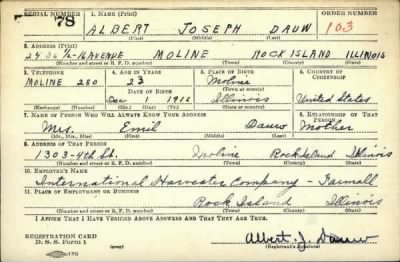 SERIAL NUMBER 1. NAME (Print) ORDER NUMBER
78 ALBERT JOSEPH DAUW 103
(First) (Middle) (Last)
2. ADDRESS (Print)
1/2-16 AVENUE MOLINE ROCK ISLAND ILLINOIS
(Number and street or R. F. D. number) (Town) (County) (State)
3. TELEPHONE 4. AGE IN YEARS 5. PLACE OF BIRTH 6. COUNTRY OF CITIZENSHIP
MOLINE 280 23 Moline
DATE OF BIRTH (Town or county)
Dec 1916 Illinois United States
(Exchange) (Number) (Mo.) (Day) (Yr.) (State or country)
7. NAME OF PERSON WHO WILL ALWAYS KNOW YOUR ADDRESS 8. RELATIONSHIP OF THAT PERSON
Mrs. Emil Dauw Mother
(Mr., Mrs., Miss) (First) (Middle) (Last)
9. ADDRESS OF THAT PERSON
1303-4th St. Moline Rock Island Illinois
(Number and street or R. F. D. number) (Town) (County) (State)
10. EMPLOYER'S NAME
International Harvester Company - Farmall
11. PLACE OF EMPLOYMENT OR BUSINESS
Rock Island Illinois
(Number and street or R. F. D. number) (Town) (County) (State)
I AFFIRM THAT I HAVE VERIFIED ABOVE ANSWERS AND THAT THEY ARE TRUE.
REGISTRATION CARD
D. S. S. Form 1 (over) Albert J. Dauw
(Registrant's signature)